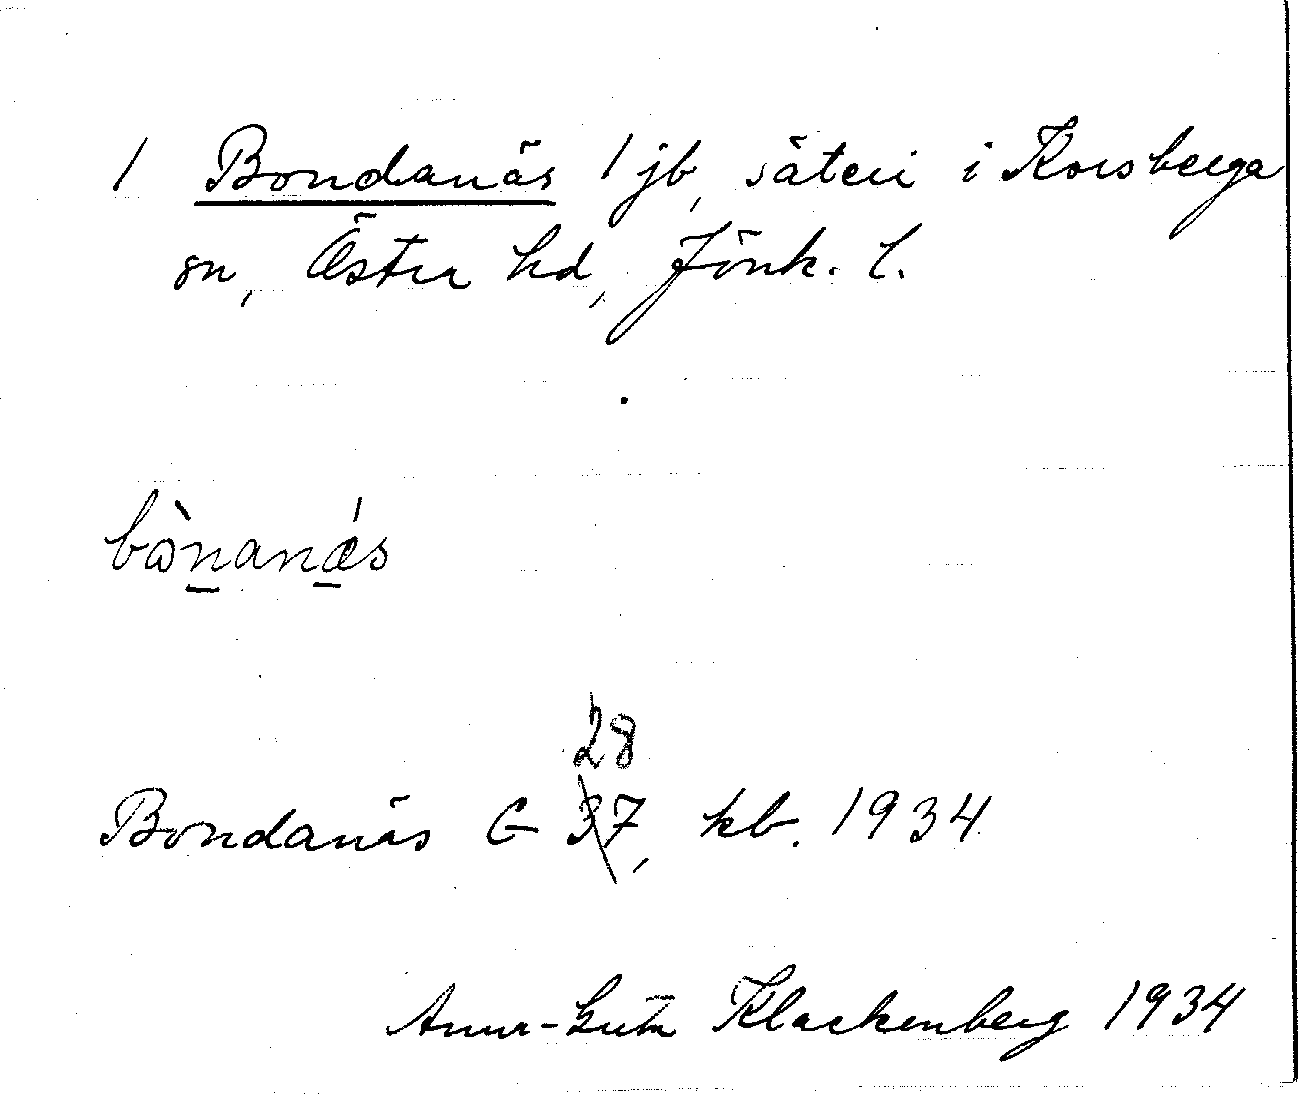 1 Bondanäs 1 jb, säteri i Korsberga
sn, Östra hd, Jönk. l.
bònanǽs
28
Bondanäs G 37, kb. 1934
Klackenberg 1934